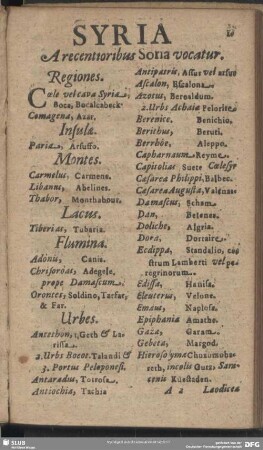 SYRIA
A recentioribus Soria vocatur.
Regiones.
Cœle vel cava Syria
Boca, Bocalebeck.
Comagena, Azar.
Insulæ.
Paria, Arsuffo.
Montes.
Carmelus. Carmena.
Libanus, Abelines.
Thabor, Monthabout.
Lacus.
Tiberias, Tubaria.
Flumina.
Adonis, Canis.
Chrisoroas, Adegele.
prope Damascum.
Orontes, Soldino, Tarfar,
& Far.
Urbes.
Antethon, 1, Geth & La-
rissa.
2. Urbs Boeot. Talandi &
3. Portus Peloponesi.
Antaradus, Tortosa.
Antiochia, Tachia
Antipatris, Assur vel arsuf
Ascalon, Escalona.
Azotus, Beroaldum.
2. Urbs Achaia Pelorite
Berenice, Benichio.
Berithus, Beruti.
Berrhöe, Aleppo.
Capharnaum Reyme
Capitolias Suete Cœlesyr
Cæsarea Philippi, Balbec.
Cæsarea Augusta, Valenas
Damascus, Scham.
Dan, Belenas.
Doliche, Algria.
Dora, Dortaire
Ecdippa, Standelio, ca-
strum Lamberti vel pe-
regrinorum.
Edissa, Hanisa.
Eleuterus, Velone.
Emaus, Naplosa.
Epiphania Amathe.
Gaza, Gazam.
Gebeta, Margod.
Hierosolyma Chuzumoba-
reth, incolis Gutza Sara-
cenis Kürstadon.
A 2 Laodicea
SLUB
DFG